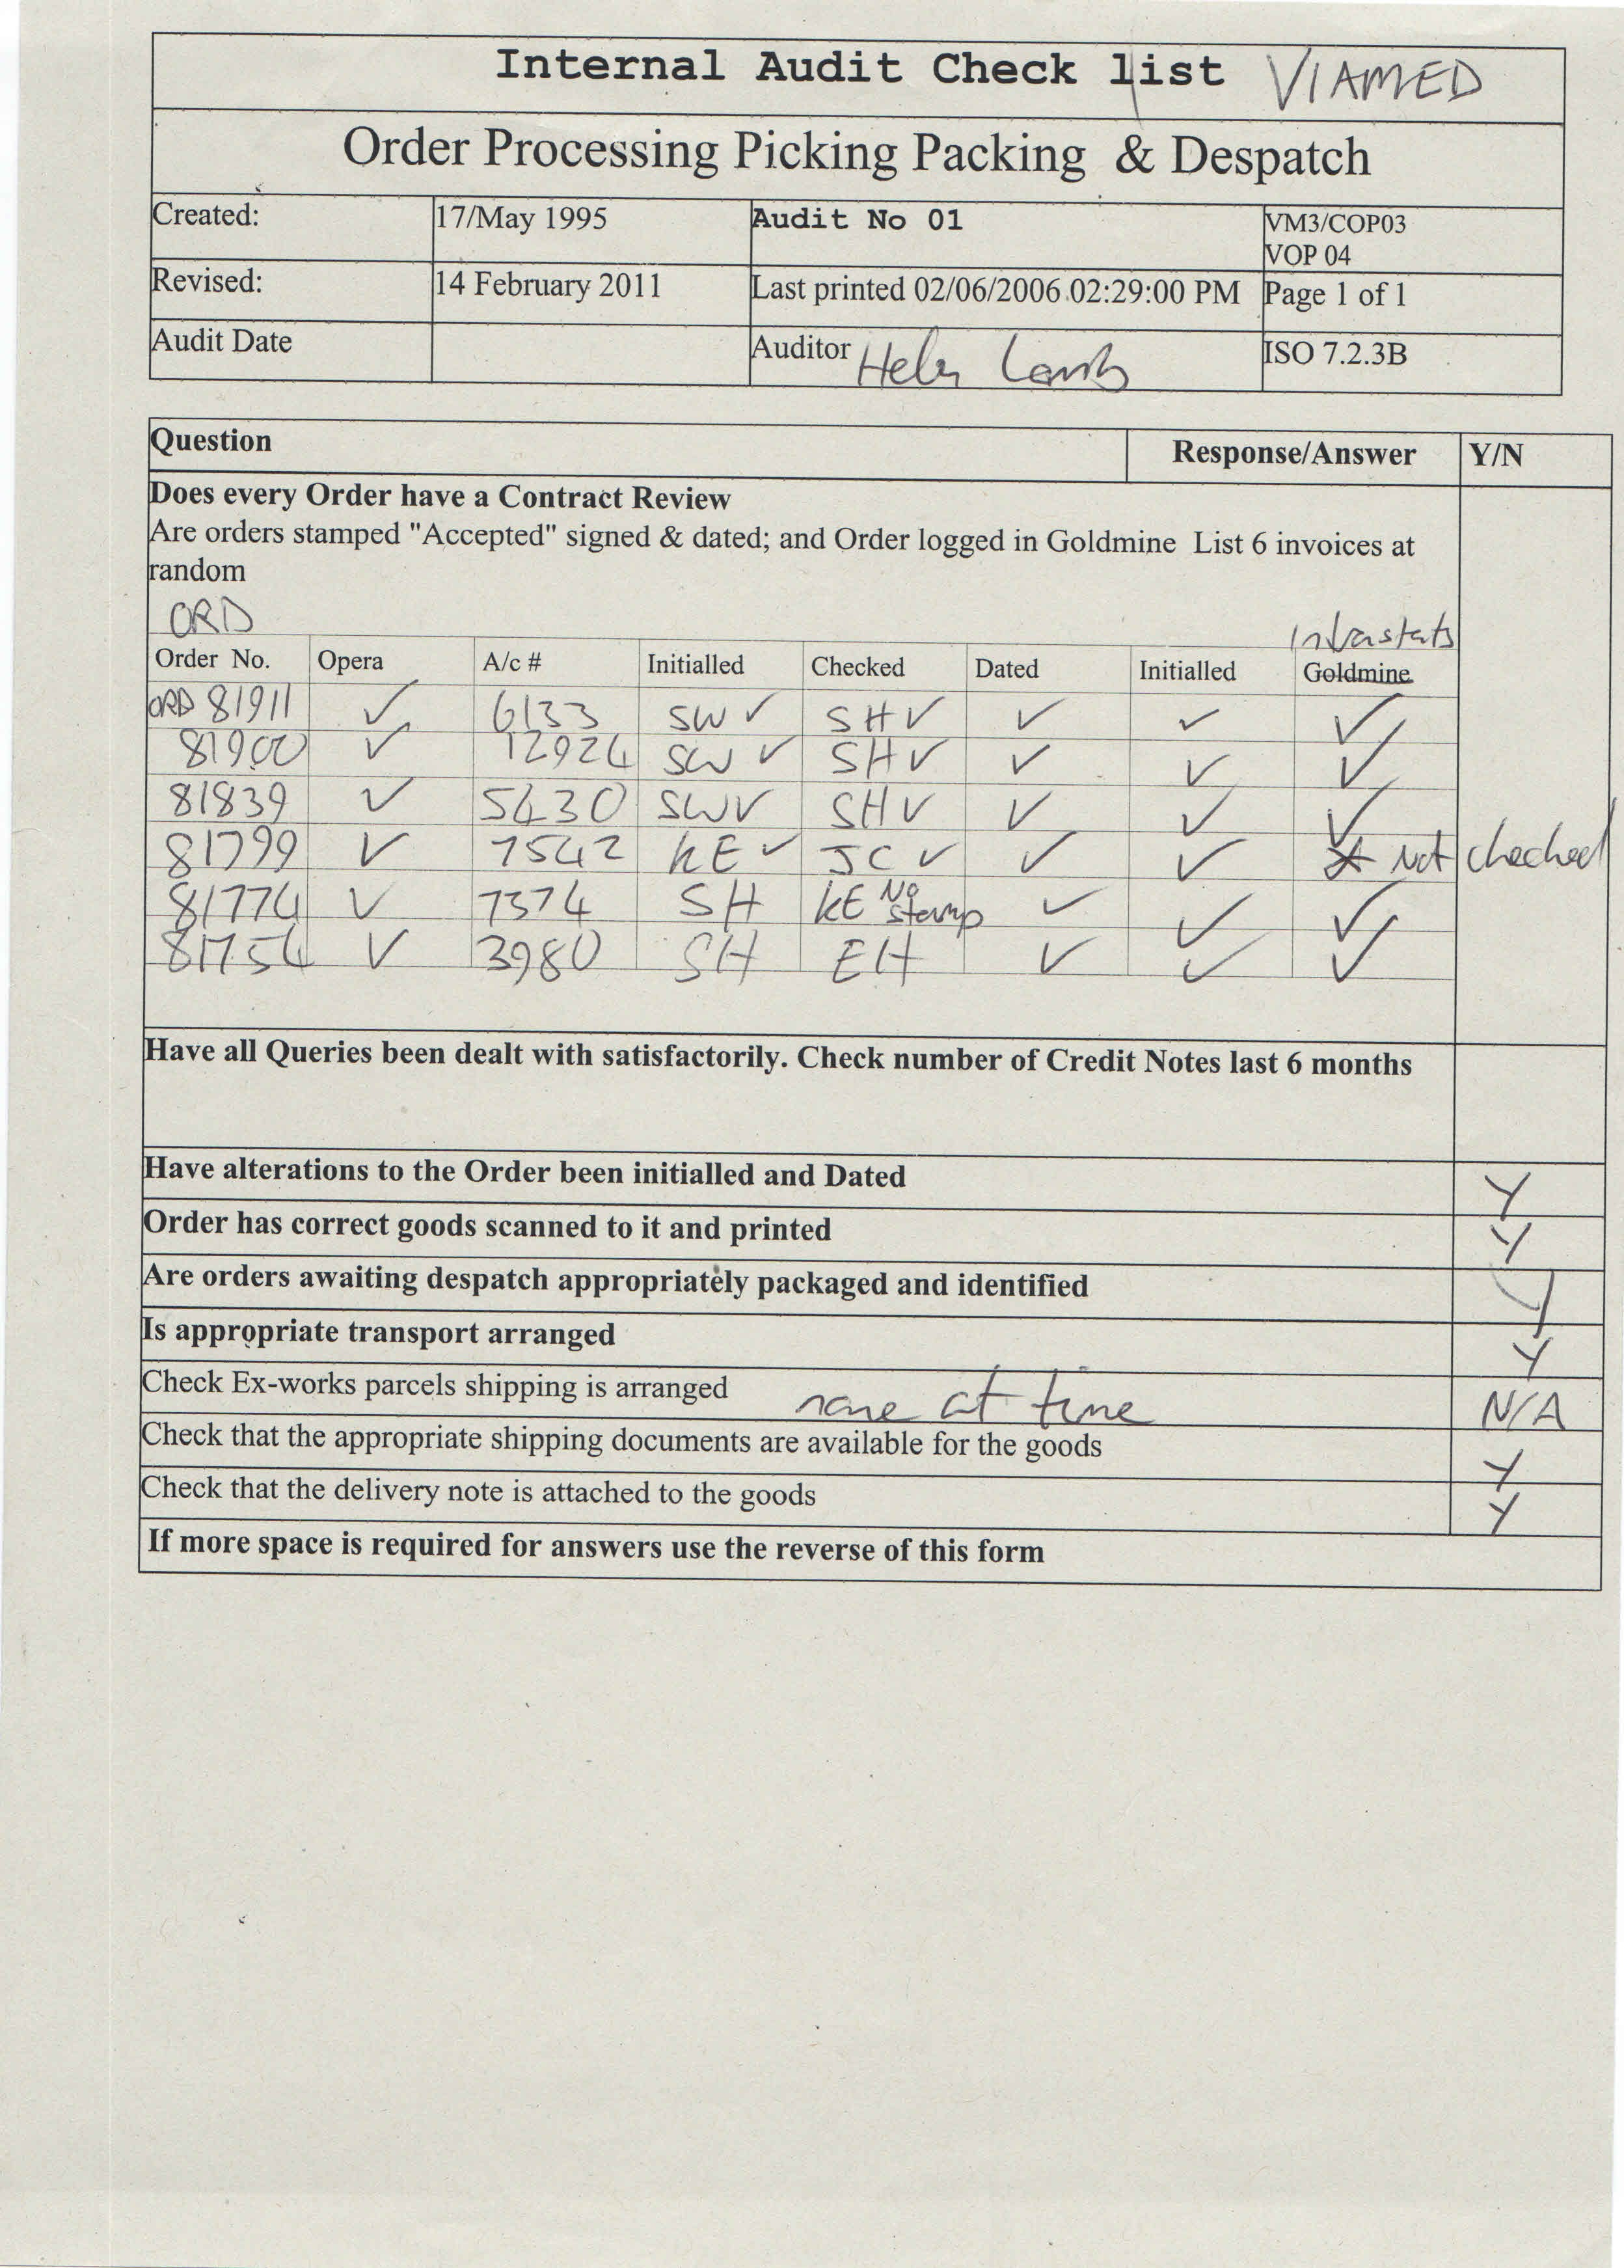 Internal Audit Check list VIAMED
Order Processing Picking Packing & Despatch
Created: 17/May 1995 Audit No 01 VM3/COP03
VOP 04
Revised: 14 February 2011 Last printed 02/06/2006 02:29:00 PM Page 1 of 1
Audit Date Auditor Helen Lamb ISO 7.2.3B
Question Response/Answer Y/N
Does every Order have a Contract Review
Are orders stamped "Accepted" signed & dated; and Order logged in Goldmine List 6 invoices at
random
ORD
Intrastats
Order No. Opera A/c # Initialled Checked Dated Initialled Goldmine
ORD 81911 ✓ 6133 SW ✓ SH ✓ ✓ ✓ ✓
81900 ✓ 12924 SW ✓ SH ✓ ✓ ✓ ✓
81839 ✓ 5430 SW ✓ SH ✓ ✓ ✓ ✓
81799 ✓ 7542 KE ✓ JC ✓ ✓ ✓ Not checked
81774 ✓ 7374 SH KE No stamp ✓ ✓ ✓
81754 ✓ 3980 SH EH ✓ ✓ ✓
Have all Queries been dealt with satisfactorily. Check number of Credit Notes last 6 months
Have alterations to the Order been initialled and Dated Y
Order has correct goods scanned to it and printed Y
Are orders awaiting despatch appropriately packaged and identified Y
Is appropriate transport arranged Y
Check Ex-works parcels shipping is arranged none at time N/A
Check that the appropriate shipping documents are available for the goods Y
Check that the delivery note is attached to the goods Y
If more space is required for answers use the reverse of this form